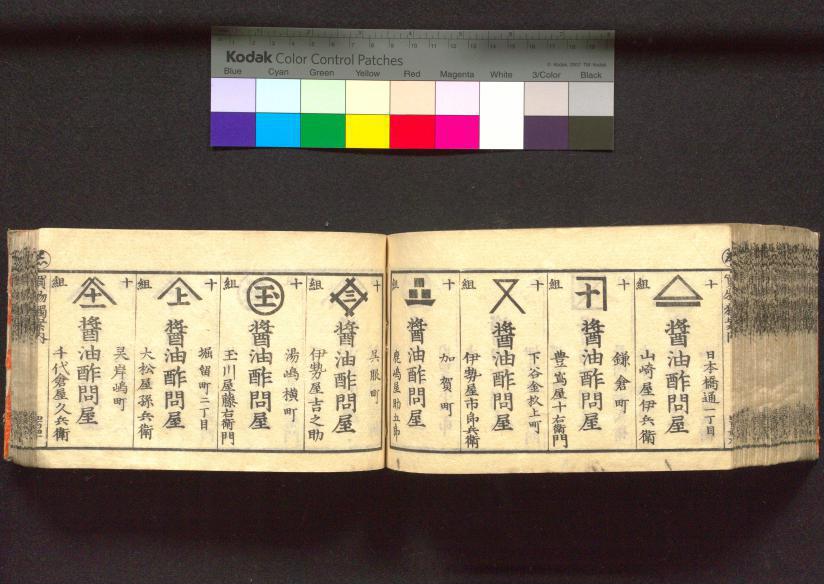 Kodak Color Control Patches
© Kodak, 2007 TM: Kodak
Blue Cyan Green Yellow Red Magenta White 3/Color Black
十組
日本橋通一丁目
醬油酢問屋
山崎屋伊兵衛
十組
鎌倉町
醬油酢問屋
豊嶌屋十右衛門
十組
下谷金杉上町
醬油酢問屋
伊勢屋市郎兵衛
十組
加賀町
醬油酢問屋
鹿嶋屋助五郎
十組
呉服町
醬油酢問屋
伊勢屋吉之助
十組
湯嶋横町
醬油酢問屋
玉川屋藤右衛門
十組
堀留町二丁目
醬油酢問屋
大松屋孫兵衛
十組
灵岸嶋町
醬油酢問屋
千代倉屋久兵衛
買物獨案内